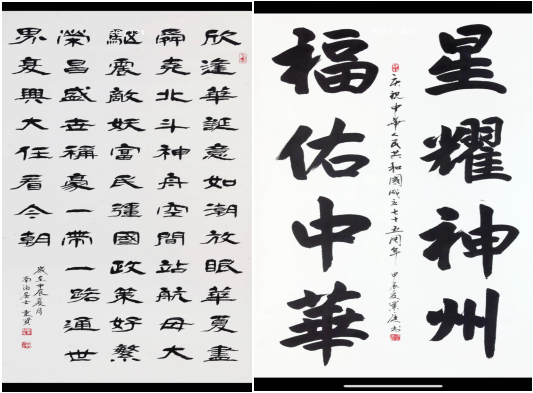 欣逢華誕意如潮放眼華夏盡
舜堯北斗神舟空間站航母大
驅震敵妖富民疆國政策好繁
榮昌盛世稱豪一帶一路通世
界复興大任看今朝
歲在甲辰夏月
星耀神州
福佑中華
庆祝中華人民共和國成立七十五周年
甲辰夏